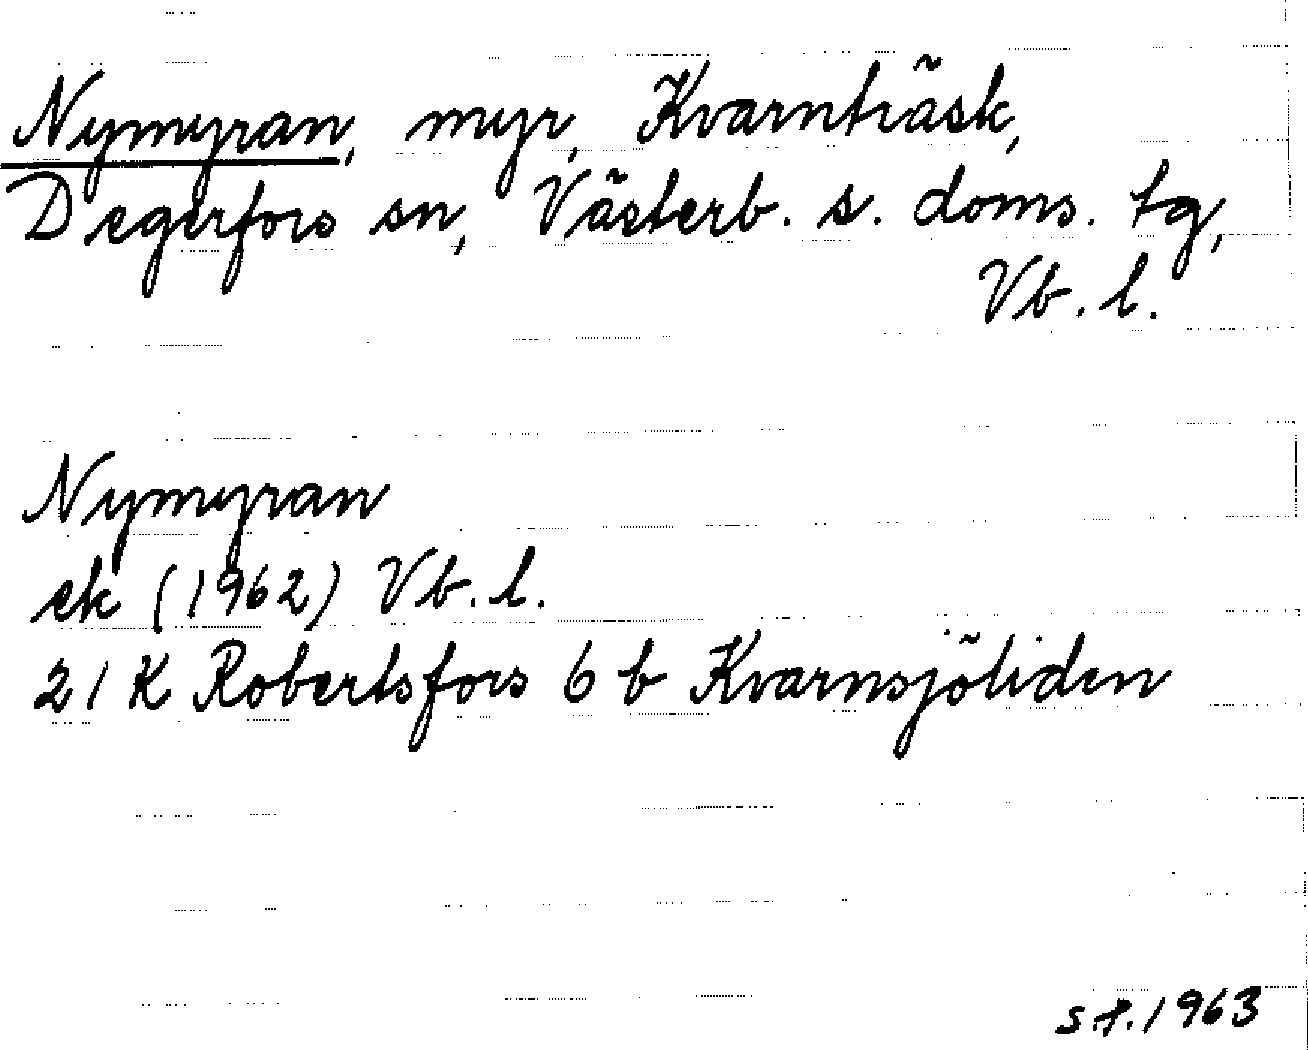 Nymyran, myr, Kvarnträsk,
Degerfors sn, Västerb. s. doms. tg,
Vb. l.
Nymyran
ek (1962) Vb. l.
21 K Robertsfors 6 b Kvarnsjöliden
s.f. 1963